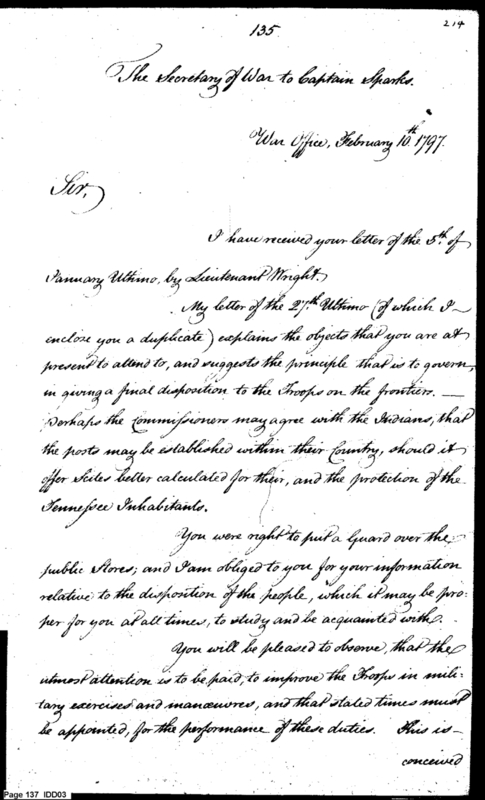 214
135
The Secretary of War to Captain Sparks.
War Office, February 10th. 1797.
Sir,
I have received your letter of the 5th. of
January Ultimo, by Lieutenant Wright.
My letter of the 27th. Ultimo (of which I
enclose you a duplicate) explains the objects that you are at
present to attend to, and suggests the principle that is to govern,
in giving a final disposition to the Troops on the frontiers. —
Perhaps the Commissioners may agree with the Indians, that
the posts may be established within their Country, should it
offer Scites better calculated for their, and the protection of the
Tennessee Inhabitants.
You were right to put a Guard over the
public Stores; and I am obliged to you for your information
relative to the disposition of the people, which it may be pro-
per for you at all times, to study and be acquainted with.
You will be pleased to observe, that the
utmost attention is to be paid, to improve the Troops in mili-
tary exercises and manœuvres, and that stated times must
be appointed, for the performance of these duties. This is
conceived
Page 137 IDD03